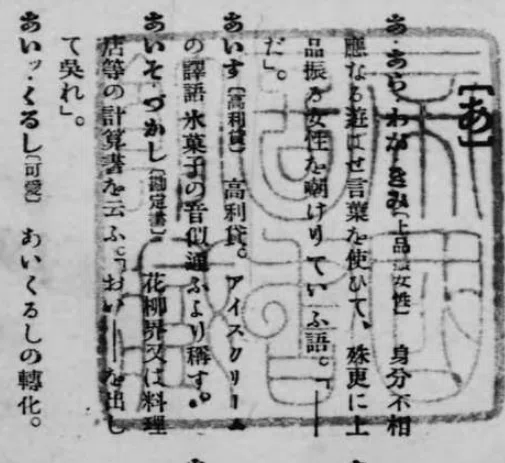 【あ】
あ・あら・わが・きみ〔上品振女性〕 身分不相
應なる遊ばせ言葉を使ひて、殊更に上
品振る女性を嘲けりていふ語。「――
だ」。
あいす〔高利貸〕 高利貸。アイスクリーム
の譯語氷菓子の音似通ふより稱す。
あいそ・づかし〔勘定書〕 花柳界又は料理
店等の計算書を云ふ。「おい――を出し
て吳れ」。
あいッ・くるし〔可愛〕 あいくるしの轉化。